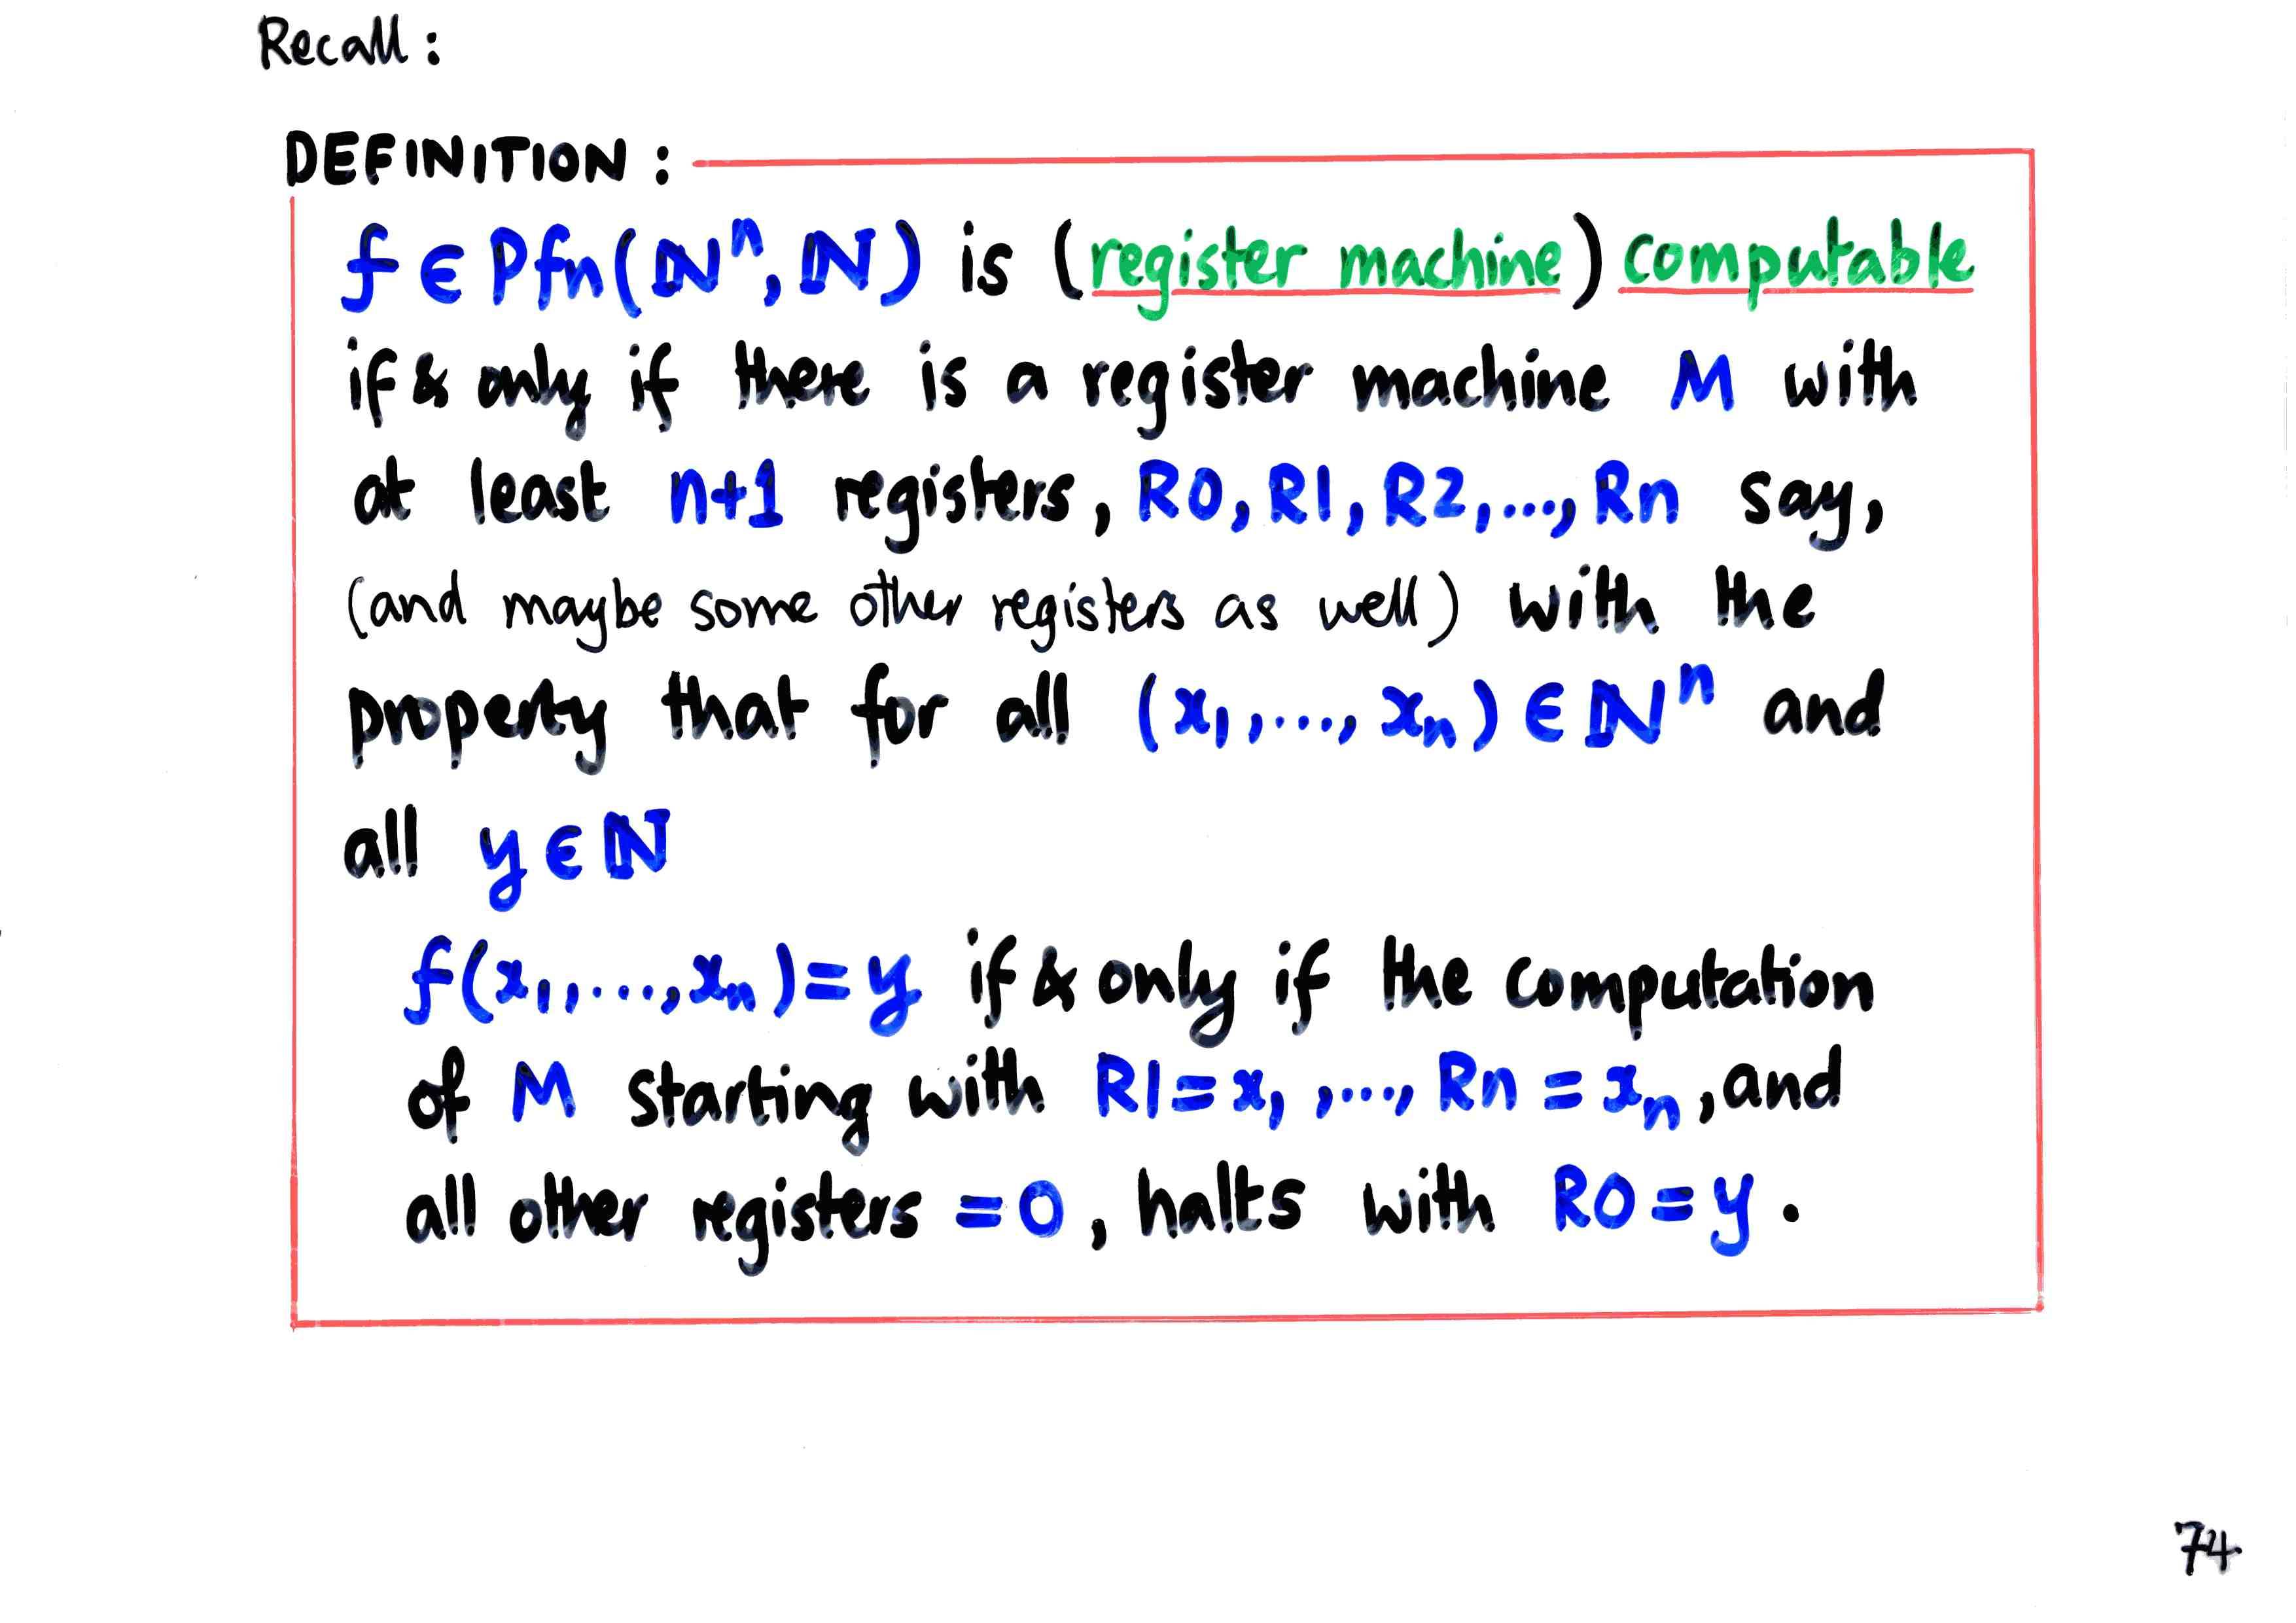 Recall :
DEFINITION :
f ∈ Pfn(ℕⁿ, ℕ) is (register machine) computable
if & only if there is a register machine M with
at least n+1 registers, R0, R1, R2, ..., Rn say,
(and maybe some other registers as well) with the
property that for all (x₁, ..., xₙ) ∈ ℕⁿ and
all y ∈ ℕ
f(x₁, ..., xₙ) = y if & only if the computation
of M starting with R1 = x₁, ...., Rn = xₙ, and
all other registers = 0, halts with R0 = y.
74